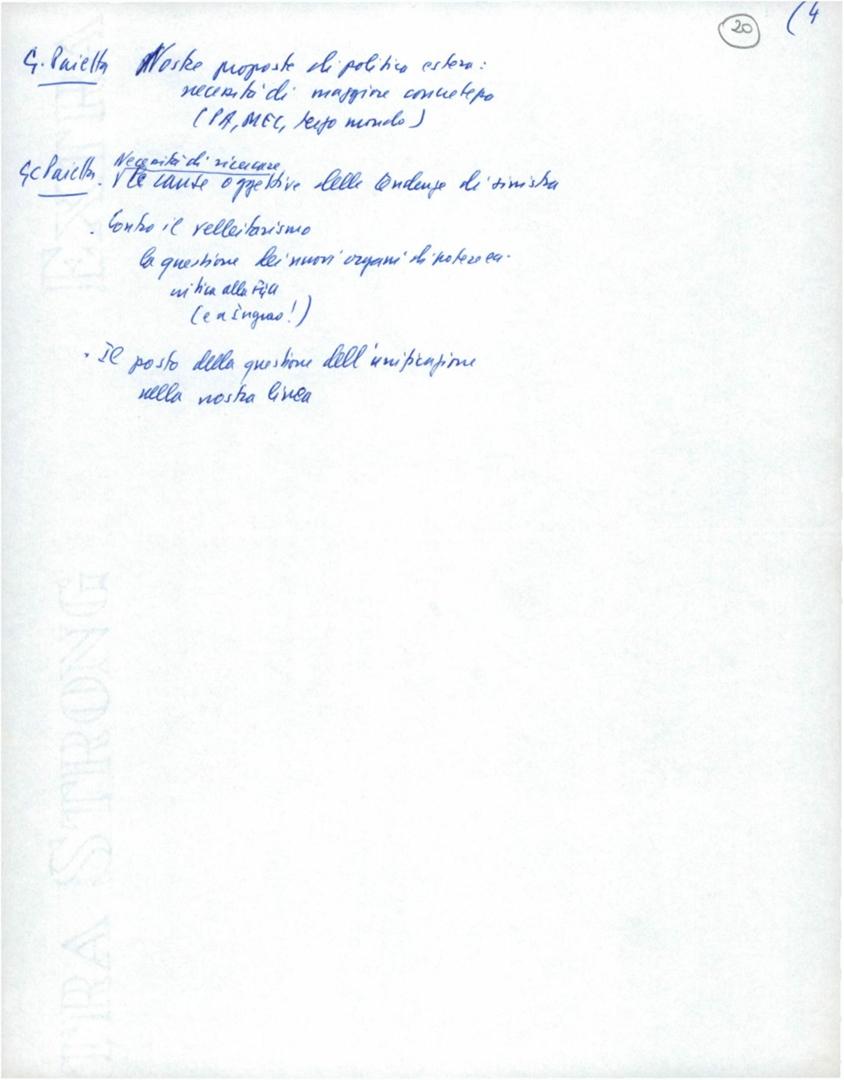 20
(4
G. Paietta Nostre proposte di politica estera:
necessità di maggiore concretezza
(PA, MEC, terzo mondo)
Necessità di ricercare
GC Paietta. le cause oggettive delle tendenze di sinistra
. Contro il velleitarismo
la questione dei nuovi organi di potere e a-
critica alla FGCI
(e a Ingrao!)
. Il posto della questione dell'unificazione
nella nostra linea
EXTRA STRONG